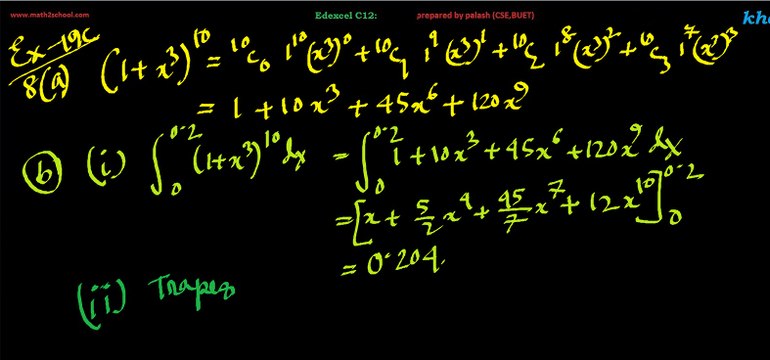 www.math2school.com Edexcel C12: prepared by palash (CSE,BUET) kh
Ex-19c
8(a) (1+x³)¹⁰ = ¹⁰C₀ 1¹⁰(x³)⁰ + ¹⁰C₁ 1⁹(x³)¹ + ¹⁰C₂ 1⁸(x³)² + ¹⁰C₃ 1⁷(x³)³
= 1 + 10x³ + 45x⁶ + 120x⁹
(b) (i) ∫₀^0.2 (1+x³)¹⁰ dx = ∫₀^0.2 1 + 10x³ + 45x⁶ + 120x⁹ dx
= [x + 5/2 x⁴ + 45/7 x⁷ + 12x¹⁰]₀^0.2
= 0.204.
(ii) Trapez